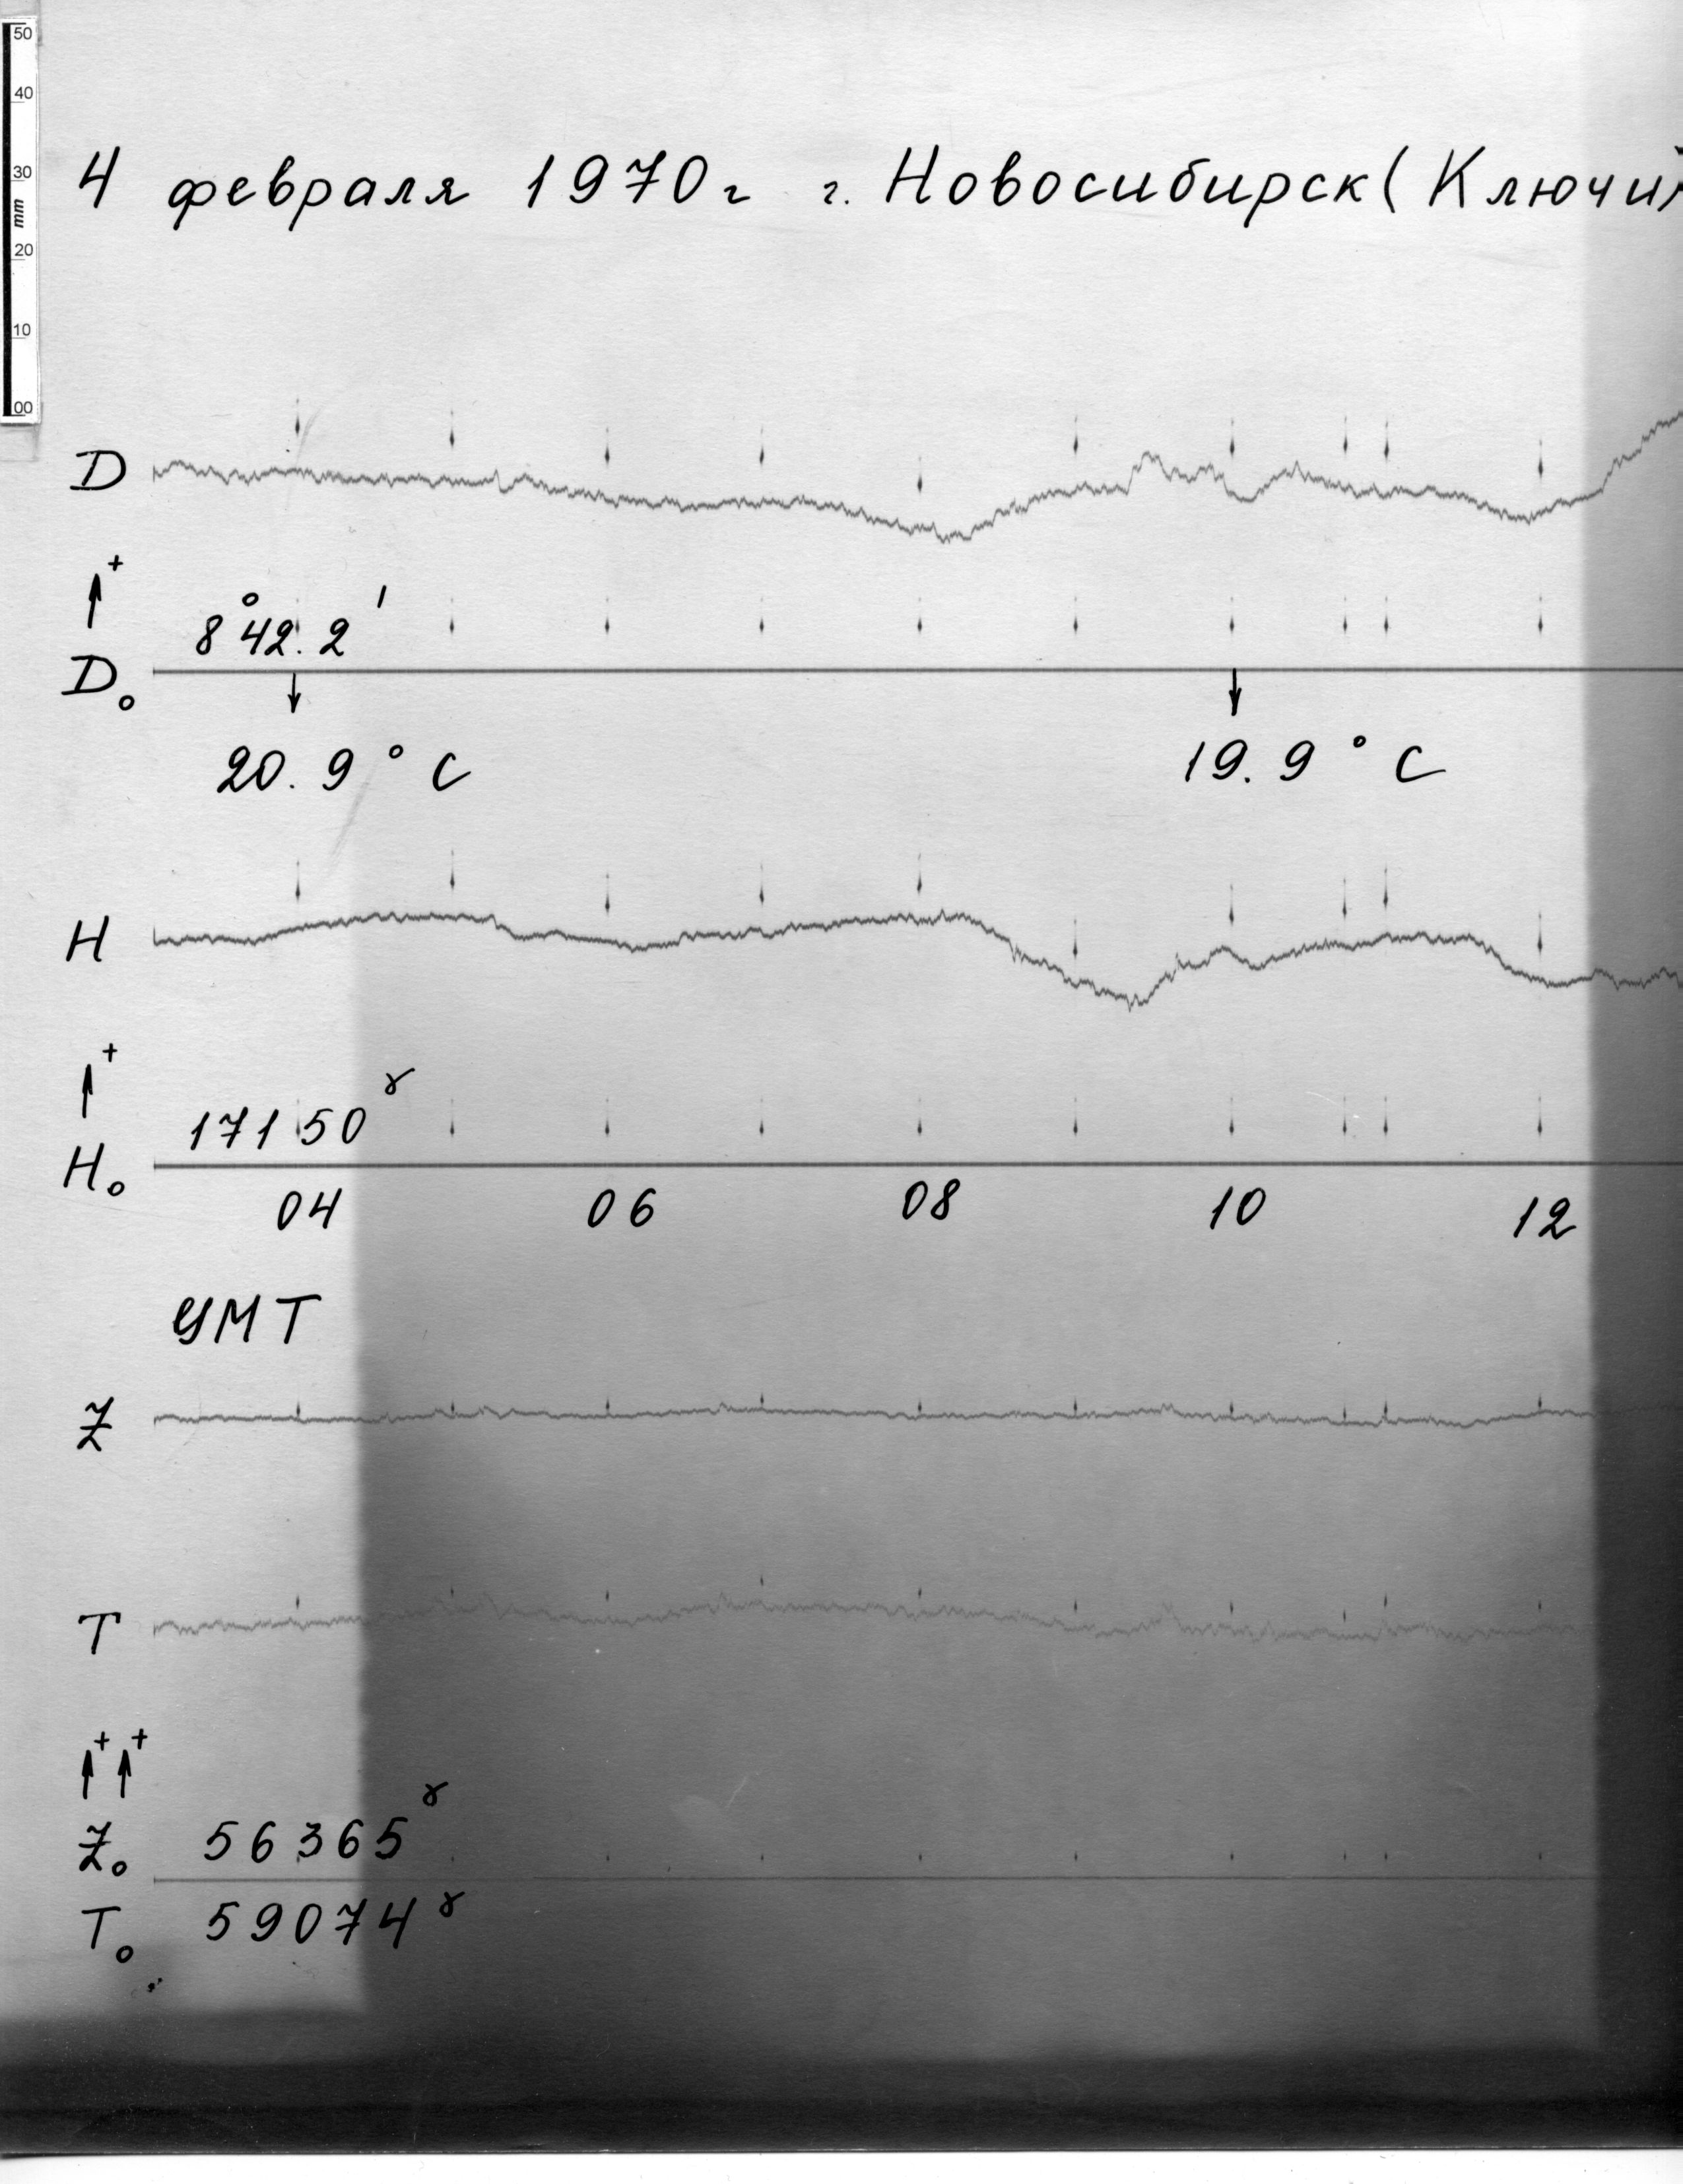 50
40
30
mm
20
10
00
4 февраля 1970г г. Новосибирск (Ключи)
D
+
8°42.2'
D₀
20.9°C 19.9°C
H
+
17150 γ
H₀
04 06 08 10 12
УМТ
Z
T
+ +
Z₀ 56365 γ
T₀ 59074 γ